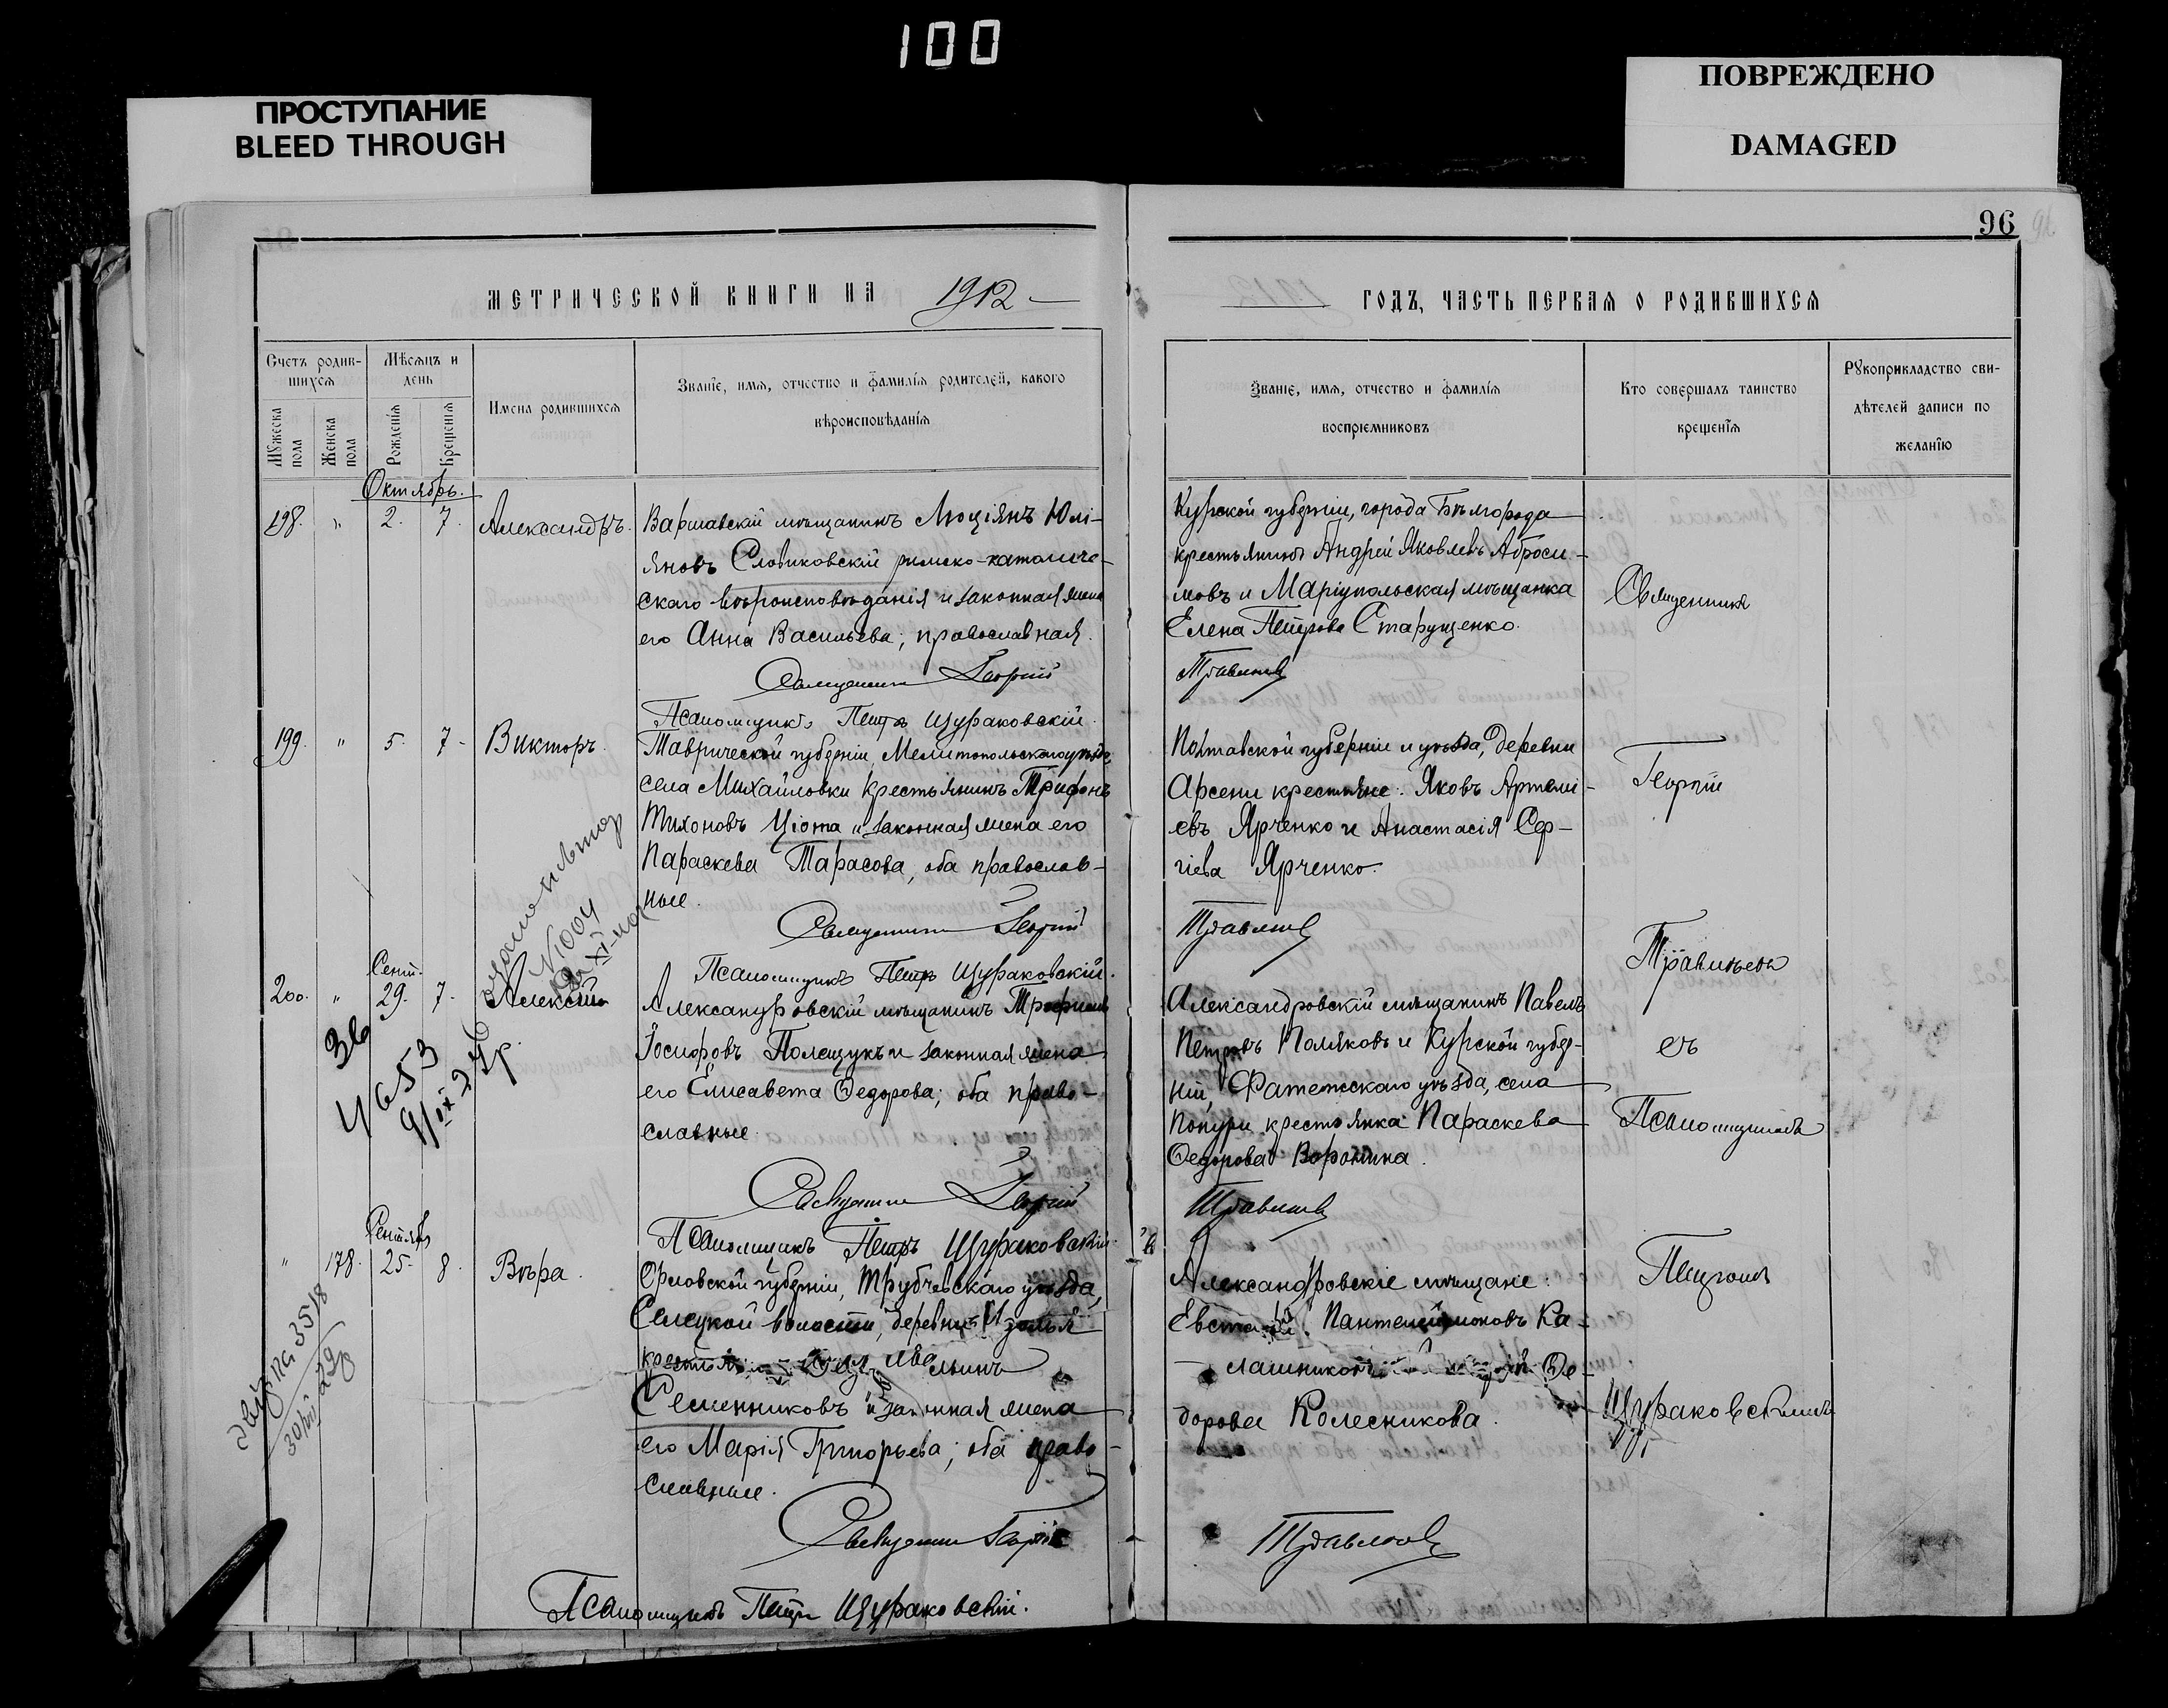 100
ПРОСТУПАНИЕ
BLEED THROUGH
ПОВРЕЖДЕНО
DAMAGED
96
МЕТРИЧЕСКОЙ КНИГИ НА 1912
ГОДЪ, ЧАСТЬ ПЕРВАЯ О РОДИВШИХСЯ
Счетъ родив-
шихся
Мужеска пола
Женска пола
Мѣсяцъ и
день
Рожденія
Крещенія
Имена родившихся
Званіе, имя, отчество и фамилія родителей, какого
вѣроисповѣданія
Званіе, имя, отчество и фамилія
воспріемниковъ
Кто совершалъ таинство
крещенія
Рукоприкладство сви-
дѣтелей записи по
желанію
Октябрь.
198. " 2. 7. Александръ.
Варшавскій мѣщанинъ Люціянъ Юлі-
яновъ Словиковскій римско-католиче-
скаго вѣроисповѣданія и законная жена
его Анна Васильева; православная.
Священникъ Георгій
Псаломщикъ Петръ Щураковскій.
Курской губерніи, города Бѣлгорода
крестьянинъ Андрей Яковлевъ Аброси-
мовъ и Маріупольская мѣщанка
Елена Петрова Старущенко.
199. " 5. 7. Викторъ.
Таврической губерніи, Мелитопольскаго уѣзда,
села Михайловки крестьянинъ Трифонъ
Тихоновъ Ціома и законная жена его
Параскева Тарасова, оба православ-
ные.
Священникъ Георгій
Псаломщикъ Петръ Щураковскій.
Полтавской губерніи и уѣзда, деревни
Арсени крестьяне: Яковъ Артемі-
евъ Ярченко и Анастасія Сер-
гіева Ярченко.
Сент.
200. " 29. 7. Алексій
Александровскій мѣщанинъ Трофимъ
Іосифовъ Полещукъ и законная жена
его Елисавета Ѳедорова; оба право-
славные.
Священникъ Георгій
Псаломщикъ Петръ Щураковскій.
Александровскій мѣщанинъ Павелъ
Петровъ Поляковъ и Курской губер-
ніи, Фатежскаго уѣзда, села
крестьянка Параскева
Ѳедорова Воронина.
№1004
4653
Сентябр
" 178. 25. 8. Вѣра.
Орловской губерніи, Трубчевскаго уѣзда,
Селецкой волости, деревни
Семенниковъ и законная жена
его Марія Григорьева; оба право-
славные.
Священникъ Георгій
Псаломщикъ Петръ Щураковскій.
Александровскіе мѣщане:
Пантелеймоновъ Ка-
лашниковъ Ѳе-
дорова Колесникова.
3518
Священникъ
Георгій
съ
Псаломщикомъ
Петромъ
Щураковскимъ